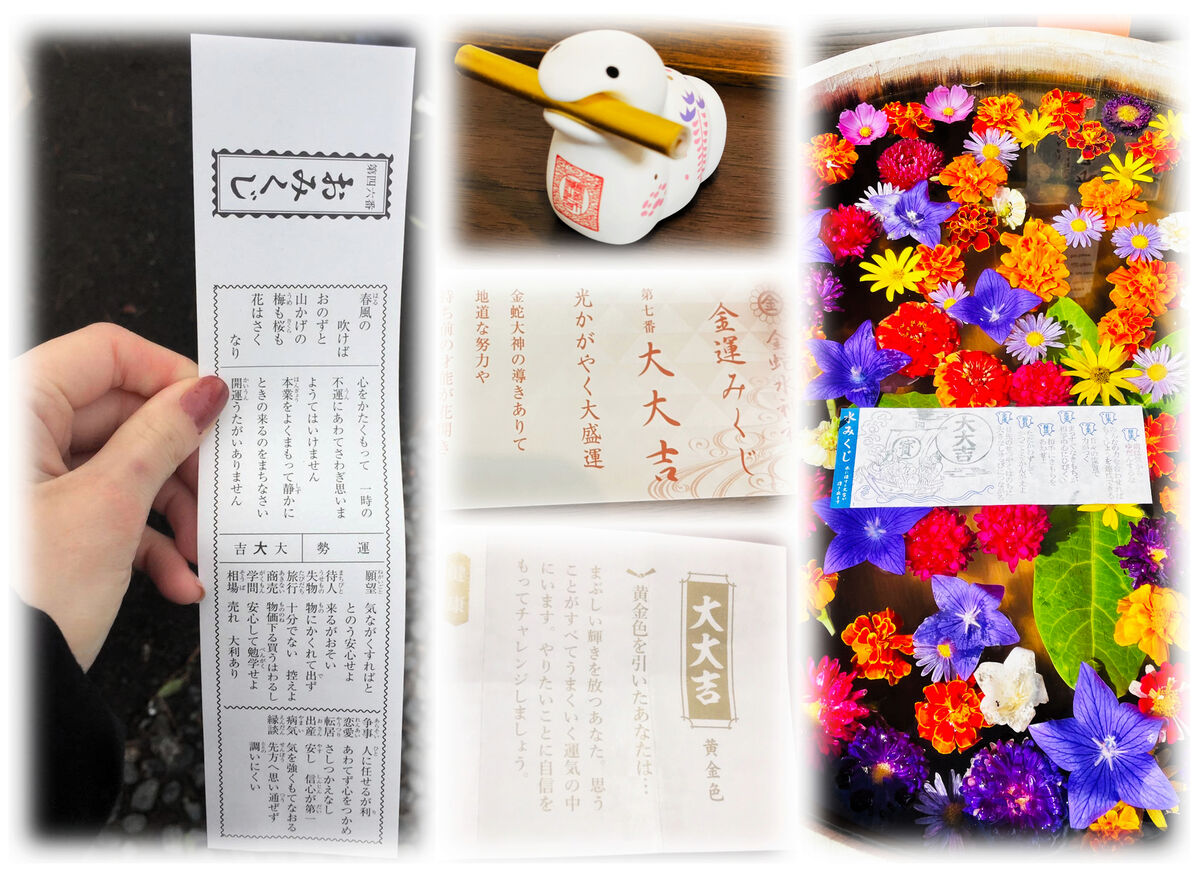 第四六番
おみくじ
春風の
吹けば
おのずと
山かげの
梅も桜も
花はさく
なり
心をかたくもって 一時の
不運にあわてさわぎ思いま
ようてはいけません
本業をよくまもって静かに
ときの来るのをまちなさい
開運うたがいありません
運勢
大大吉
願望 気ながくすればと
とのう安心せよ
待人 来るがおそい
失物 物にかくれて出ず
旅行 十分でない 控えよ
商売 物価下る買うはわるし
学問 安心して勉学せよ
相場 売れ 大利あり
争事 人に任せるが利
恋愛 あわてず心をつかめ
転居 さしつかえなし
出産 安し 信心が第一
病気 気を強くもてなおる
縁談 先方へ思い通ぜず
調いにくい
金運みくじ
第七番
大大吉
光かがやく大盛運
金蛇大神の導きありて
地道な努力や
大大吉
黄金色
黄金色を引いたあなたは…
まぶしい輝きを放つあなた。思う
ことがすべてうまくいく運気の中
にいます。やりたいことに自信を
もってチャレンジしましょう。
健康
水みくじ
大大吉
寳